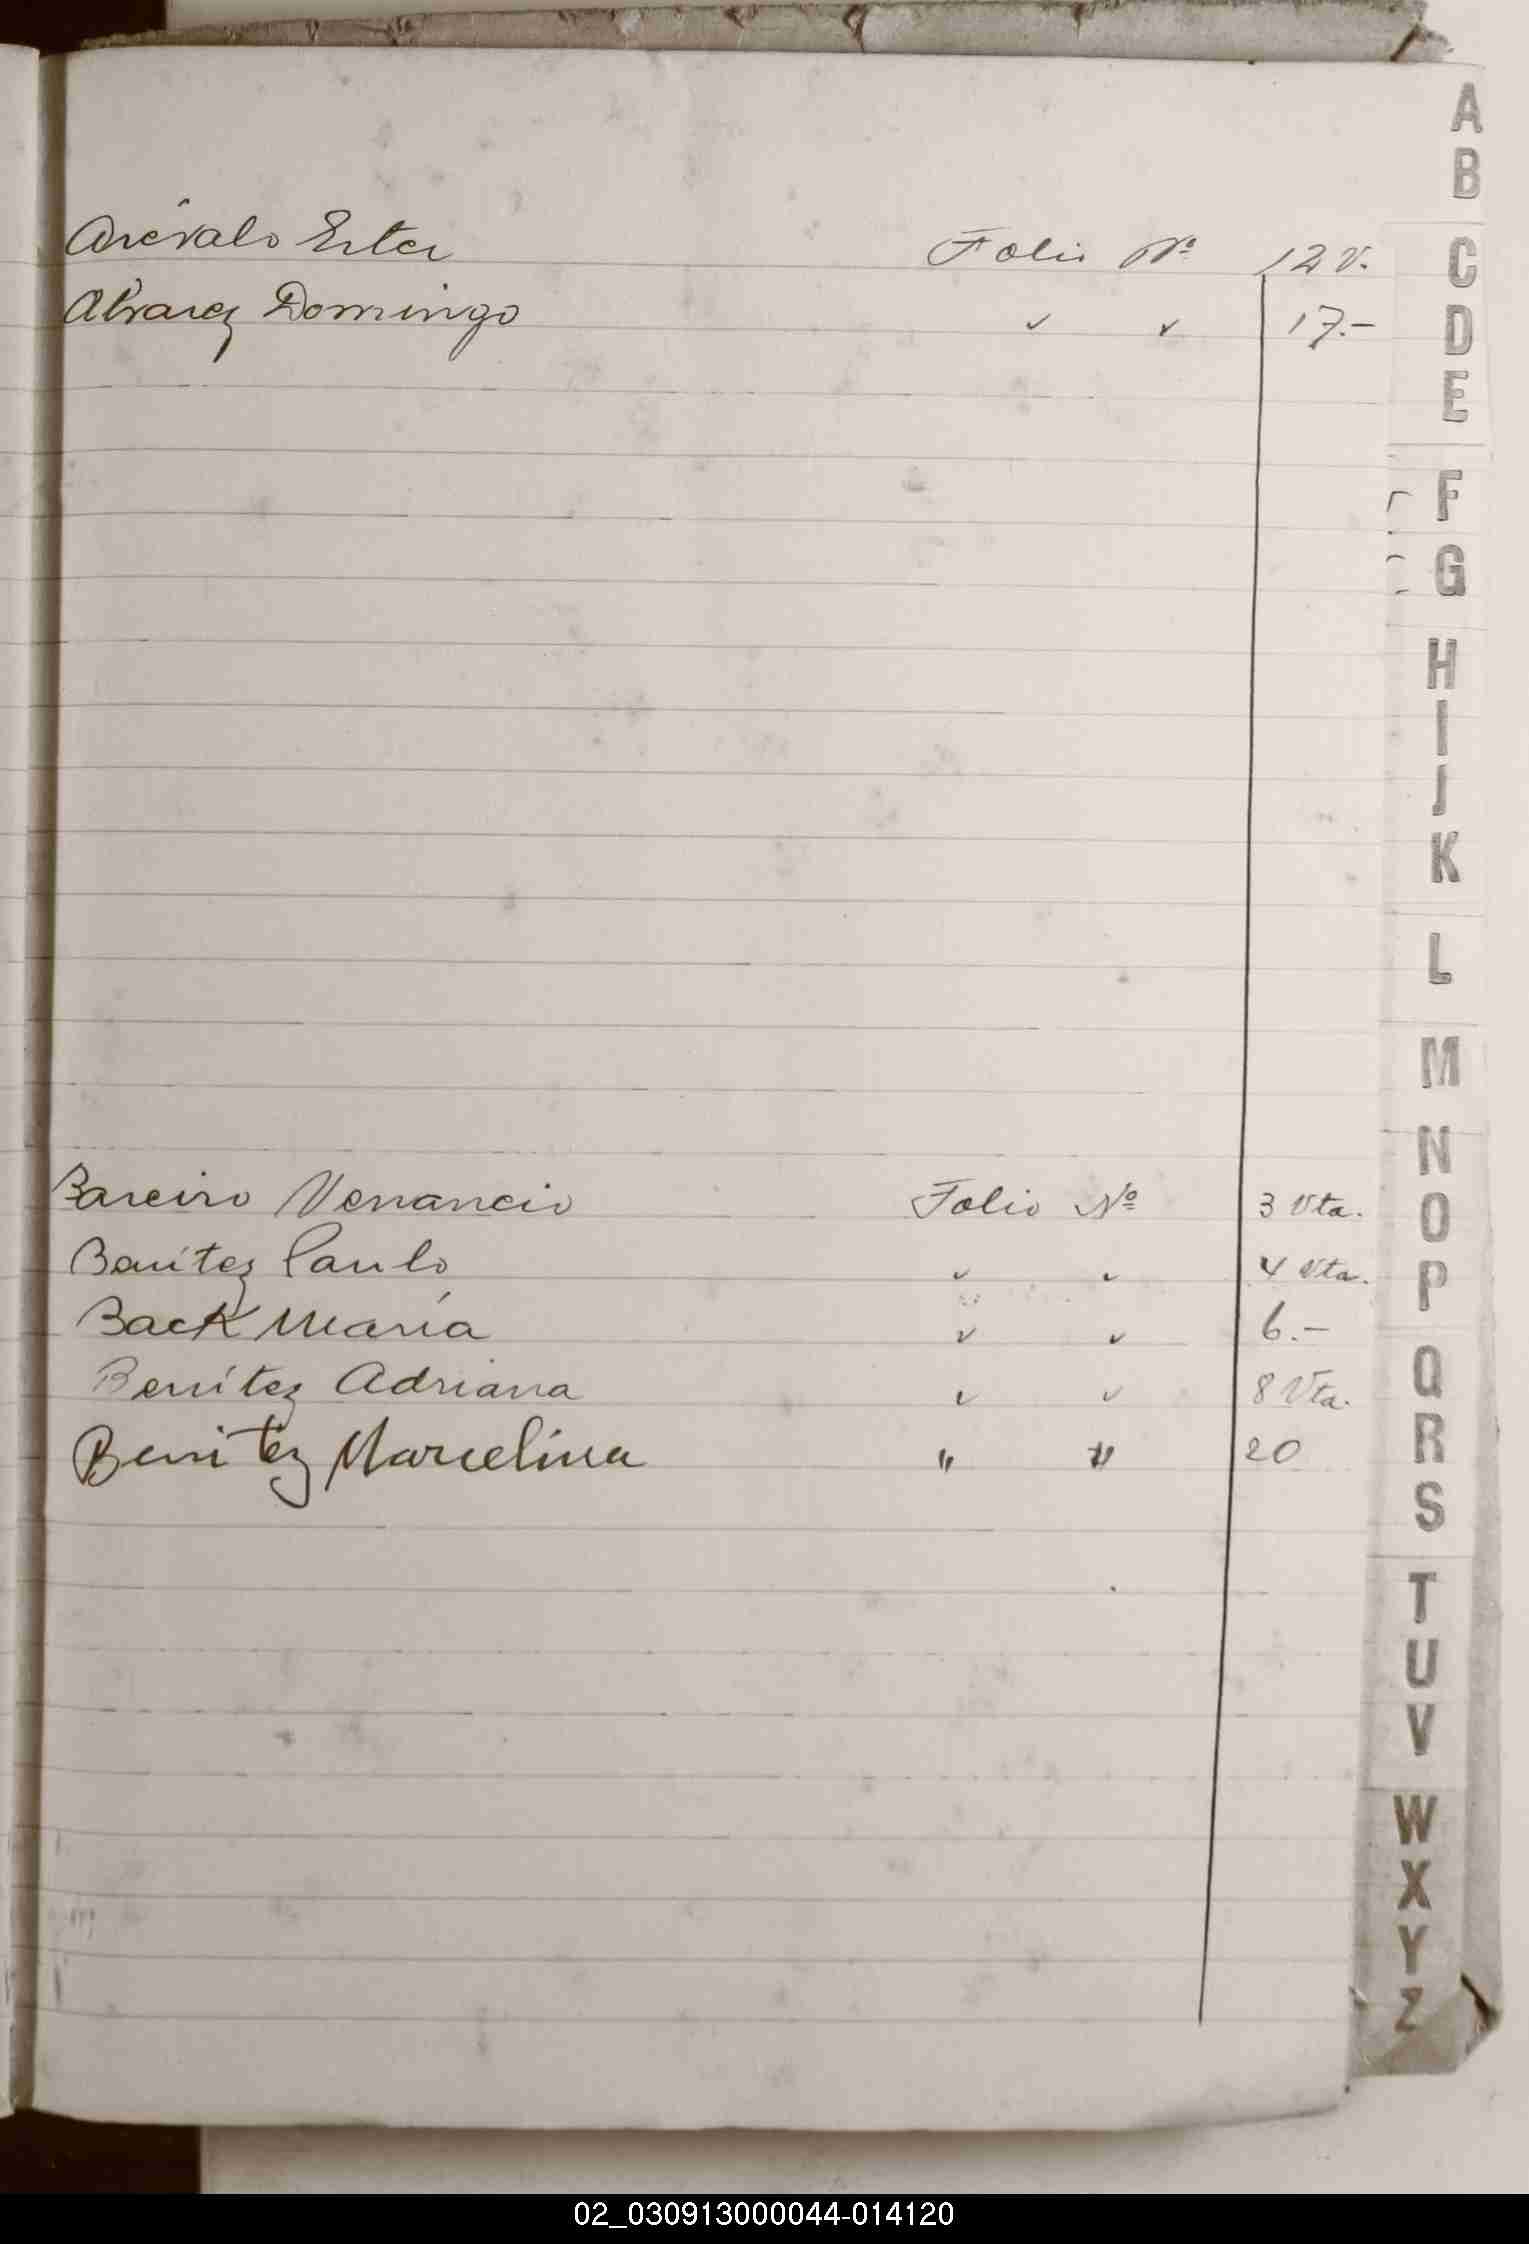 Arévalo Ester Folio Nº 12 V.
Alvarez Domingo ✓ ✓ 17.-
Bareiro Venancio Folio Nº 3 Vta.
Benítez Paulo ✓ ✓ 4 Vta.
Back María ✓ ✓ 6.-
Benítez Adriana ✓ ✓ 8 Vta.
Benitez Marcelina " " 20
A
B
C
D
E
F
G
H
I
J
K
L
M
N
O
P
Q
R
S
T
U
V
W
X
Y
Z
02_030913000044-014120